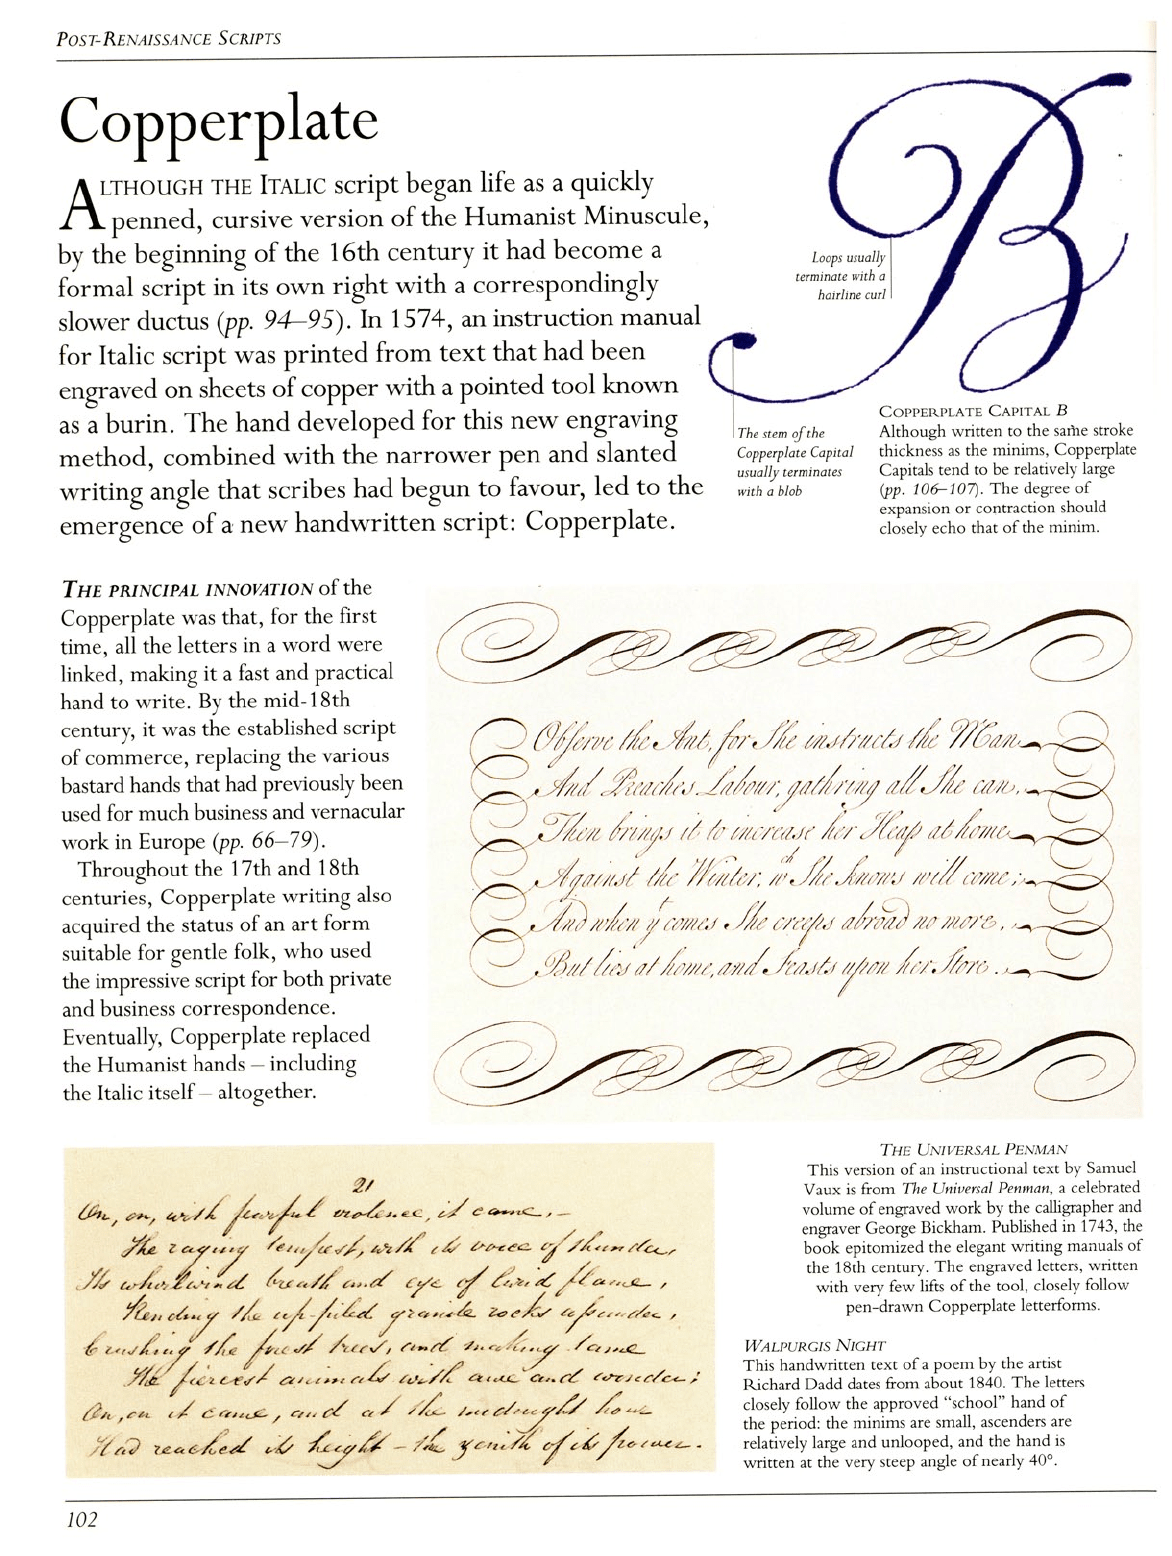 POST-RENAISSANCE SCRIPTS
Copperplate
ALTHOUGH THE ITALIC script began life as a quickly
penned, cursive version of the Humanist Minuscule,
by the beginning of the 16th century it had become a
formal script in its own right with a correspondingly
slower ductus (pp. 94–95). In 1574, an instruction manual
for Italic script was printed from text that had been
engraved on sheets of copper with a pointed tool known
as a burin. The hand developed for this new engraving
method, combined with the narrower pen and slanted
writing angle that scribes had begun to favour, led to the
emergence of a new handwritten script: Copperplate.
B
Loops usually
terminate with a
hairline curl
The stem of the
Copperplate Capital
usually terminates
with a blob
COPPERPLATE CAPITAL B
Although written to the same stroke
thickness as the minims, Copperplate
Capitals tend to be relatively large
(pp. 106–107). The degree of
expansion or contraction should
closely echo that of the minim.
THE PRINCIPAL INNOVATION of the
Copperplate was that, for the first
time, all the letters in a word were
linked, making it a fast and practical
hand to write. By the mid-18th
century, it was the established script
of commerce, replacing the various
bastard hands that had previously been
used for much business and vernacular
work in Europe (pp. 66–79).
Throughout the 17th and 18th
centuries, Copperplate writing also
acquired the status of an art form
suitable for gentle folk, who used
the impressive script for both private
and business correspondence.
Eventually, Copperplate replaced
the Humanist hands – including
the Italic itself – altogether.
Obſerve the Ant, for She instructs the Man
And Preaches Labour, gath'ring all She can,
Then brings it to increase her Heap at home
Against the Winter, wch She knows will come;
And when yt comes She creeps abroad no more,
But lies at home, and Feasts upon her Store.
21
On, on, with fearful violence, it came, –
The raging tempest, with its voice of thunder,
Its whirlwind breath and eye of livid flame,
Rending the up-piled granite rocks aſsunder,
Crushing the forest trees, and making tame
The fiercest animals with awe and wonder;
On, on it came, and at the midnight hour
Had reached its height – the zenith of its power.
THE UNIVERSAL PENMAN
This version of an instructional text by Samuel
Vaux is from The Universal Penman, a celebrated
volume of engraved work by the calligrapher and
engraver George Bickham. Published in 1743, the
book epitomized the elegant writing manuals of
the 18th century. The engraved letters, written
with very few lifts of the tool, closely follow
pen-drawn Copperplate letterforms.
WALPURGIS NIGHT
This handwritten text of a poem by the artist
Richard Dadd dates from about 1840. The letters
closely follow the approved “school” hand of
the period: the minims are small, ascenders are
relatively large and unlooped, and the hand is
written at the very steep angle of nearly 40°.
102